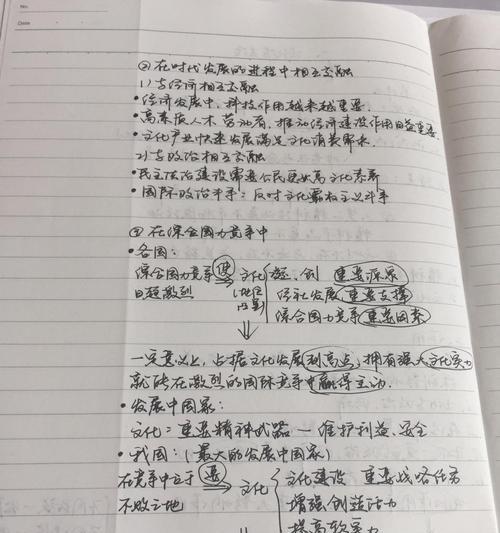 No.
Date
②在时代发展的进程中相互交融
1)与经济相互交融
•经济发展中,科技作用越来越重要.
•高素质人才、劳动者,推动经济建设作用日益重要
•文化产业快速发展满足文化消费需求.
2)与政治相互交融
•民主法治建设需要公民更高文化素养
•国际政治斗争:反对文化霸权主义斗争
③在综合国力竞争中
•各国:
综合国力竞争 使 文化 凝、创 重要源泉
日趋激烈 (地位 经社发展 重要支撑
综合国力竞争 重要因素
一定意义上,占据文化发展制高点,拥有强大文化实力
就能在激烈的国际竞争中赢得主动.
•发展中国家:
文化:重要精神武器—维护利益、安全
•我国:(最大的发展中国家)
在竞争中立于 要 文化 文化建设 重要战略任务
不败之地 增强创造活力
提高软实力